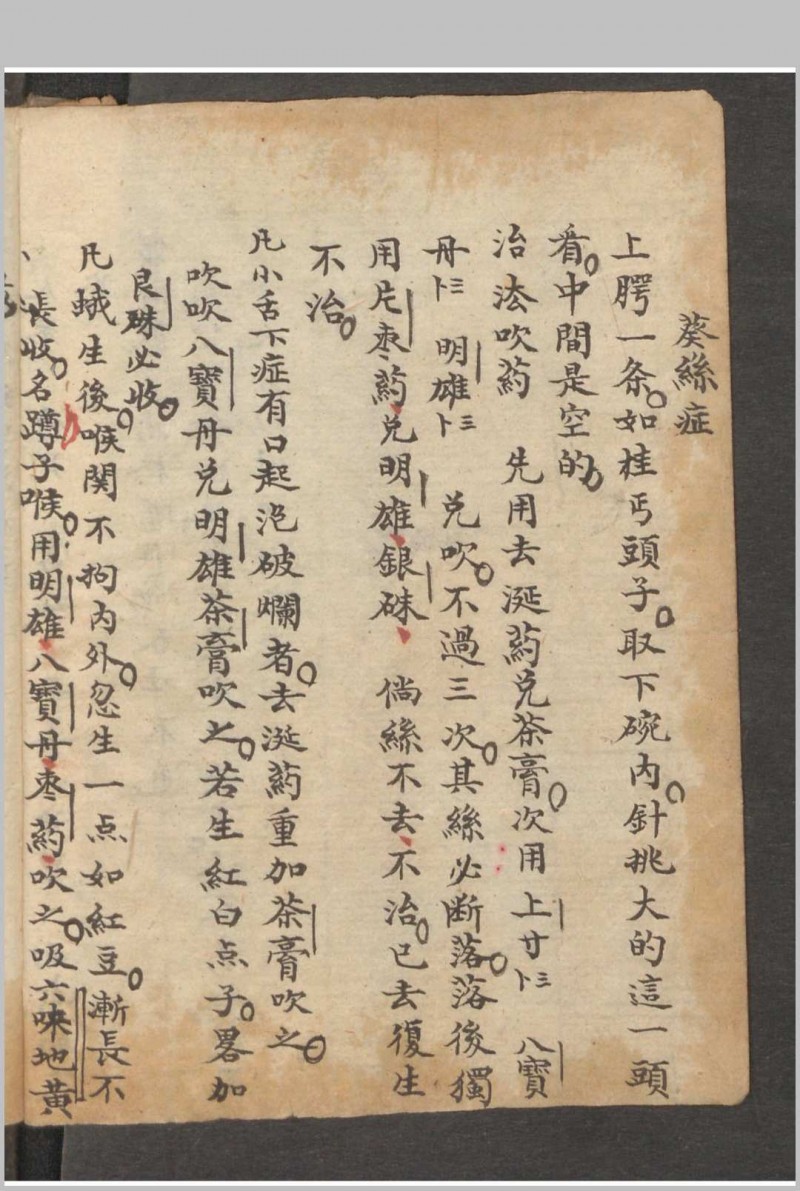 葵絲症
上腭一条如桂丐頭子取下碗内針挑大的這一頭
看中間是空的
治法吹药 先用去涎药兑茶膏次用上廿卜三 八寶
丹卜三 明雄卜三 兑吹不過三次其絲必断落落後獨
用片枣药兑明雄銀硃 倘絲不去不治已去復生
不治
凡小舌下症有口起泡破爛者去涎药重加茶膏吹之
吹吹八寶丹兑明雄茶膏吹之若生紅白点子畧加
艮硃必收
凡蛾生後喉関不拘内外忽生一点如紅豆漸長不
長收名蹲子喉用明雄八寶丹枣药吹之吸六味地黄